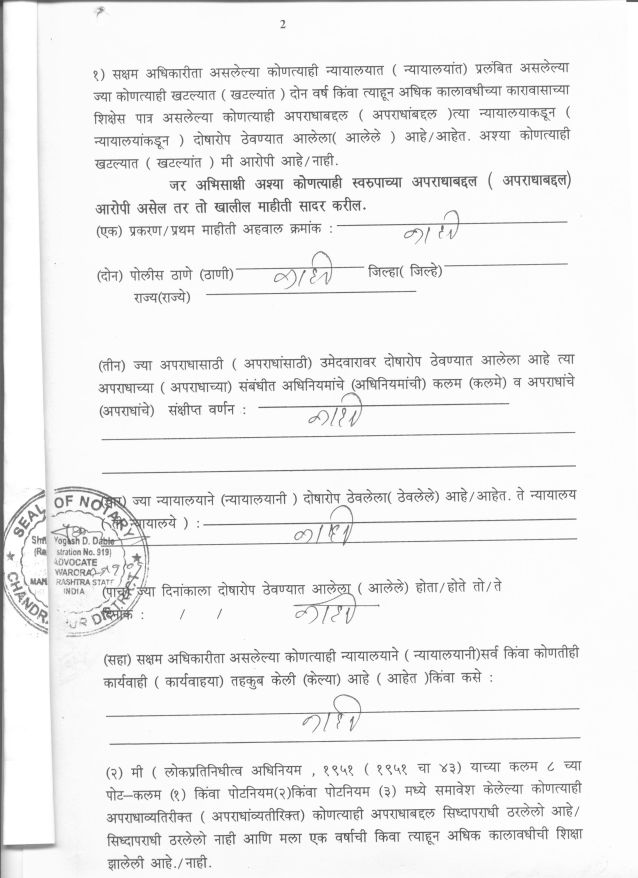 2
१) सक्षम अधिकारीता असलेल्या कोणत्याही न्यायालयात ( न्यायालयांत) प्रलंबित असलेल्या
ज्या कोणत्याही खटल्यात ( खटल्यांत ) दोन वर्ष किंवा त्याहून अधिक कालावधीच्या कारावासाच्या
शिक्षेस पात्र असलेल्या कोणत्याही अपराधाबद्दल ( अपराधांबद्दल )त्या न्यायालयाकडून (
न्यायालयांकडून ) दोषारोप ठेवण्यात आलेला( आलेले ) आहे/आहेत. अश्या कोणत्याही
खटल्यात ( खटल्यांत ) मी आरोपी आहे/नाही.
जर अभिसाक्षी अश्या कोणत्याही स्वरुपाच्या अपराधाबद्दल ( अपराधाबद्दल)
आरोपी असेल तर तो खालील माहीती सादर करील.
(एक) प्रकरण/प्रथम माहीती अहवाल क्रमांक : नाही
(दोन) पोलीस ठाणे (ठाणी) नाही जिल्हा( जिल्हे)
राज्य(राज्ये)
(तीन) ज्या अपराधासाठी ( अपराधांसाठी) उमेदवारावर दोषारोप ठेवण्यात आलेला आहे त्या
अपराधाच्या ( अपराधाच्या) संबंधीत अधिनियमांचे (अधिनियमांची) कलम (कलमे) व अपराधांचे
(अपराधांचे) संक्षीप्त वर्णन : नाही
(चार) ज्या न्यायालयाने (न्यायालयानी ) दोषारोप ठेवलेला( ठेवलेले) आहे/आहेत. ते न्यायालय
( ते न्यायालये ) : नाही
SEAL OF NOTARY
Shri Yogesh D. Dable
(Registration No. 919)
ADVOCATE
WARORA
MAHARASHTRA STATE
INDIA
CHANDRAPUR DISTRICT
(पाच) ज्या दिनांकाला दोषारोप ठेवण्यात आलेला ( आलेले) होता/होते तो/ते
दिनांक : / / नाही
(सहा) सक्षम अधिकारीता असलेल्या कोणत्याही न्यायालयाने ( न्यायालयानी)सर्व किंवा कोणतीही
कार्यवाही ( कार्यवाहया) तहकुब केली (केल्या) आहे ( आहेत )किंवा कसे :
नाही
(२) मी ( लोकप्रतिनिधीत्व अधिनियम , १९५१ ( १९५१ चा ४३) याच्या कलम ८ च्या
पोट–कलम (१) किंवा पोटनियम(२)किंवा पोटनियम (३) मध्ये समावेश केलेल्या कोणत्याही
अपराधाव्यतिरीक्त ( अपराधांव्यतीरिक्त) कोणत्याही अपराधाबद्दल सिध्दापराधी ठरलेलो आहे/
सिध्दापराधी ठरलेलो नाही आणि मला एक वर्षाची किवा त्याहून अधिक कालावधीची शिक्षा
झालेली आहे./नाही.